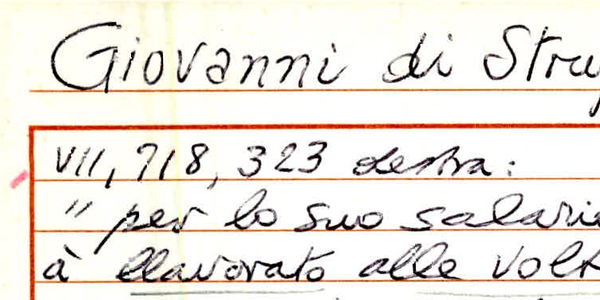 Giovanni di Stra
VII, 718, 323 destra:
" per lo suo salari
à llavorato alle volt